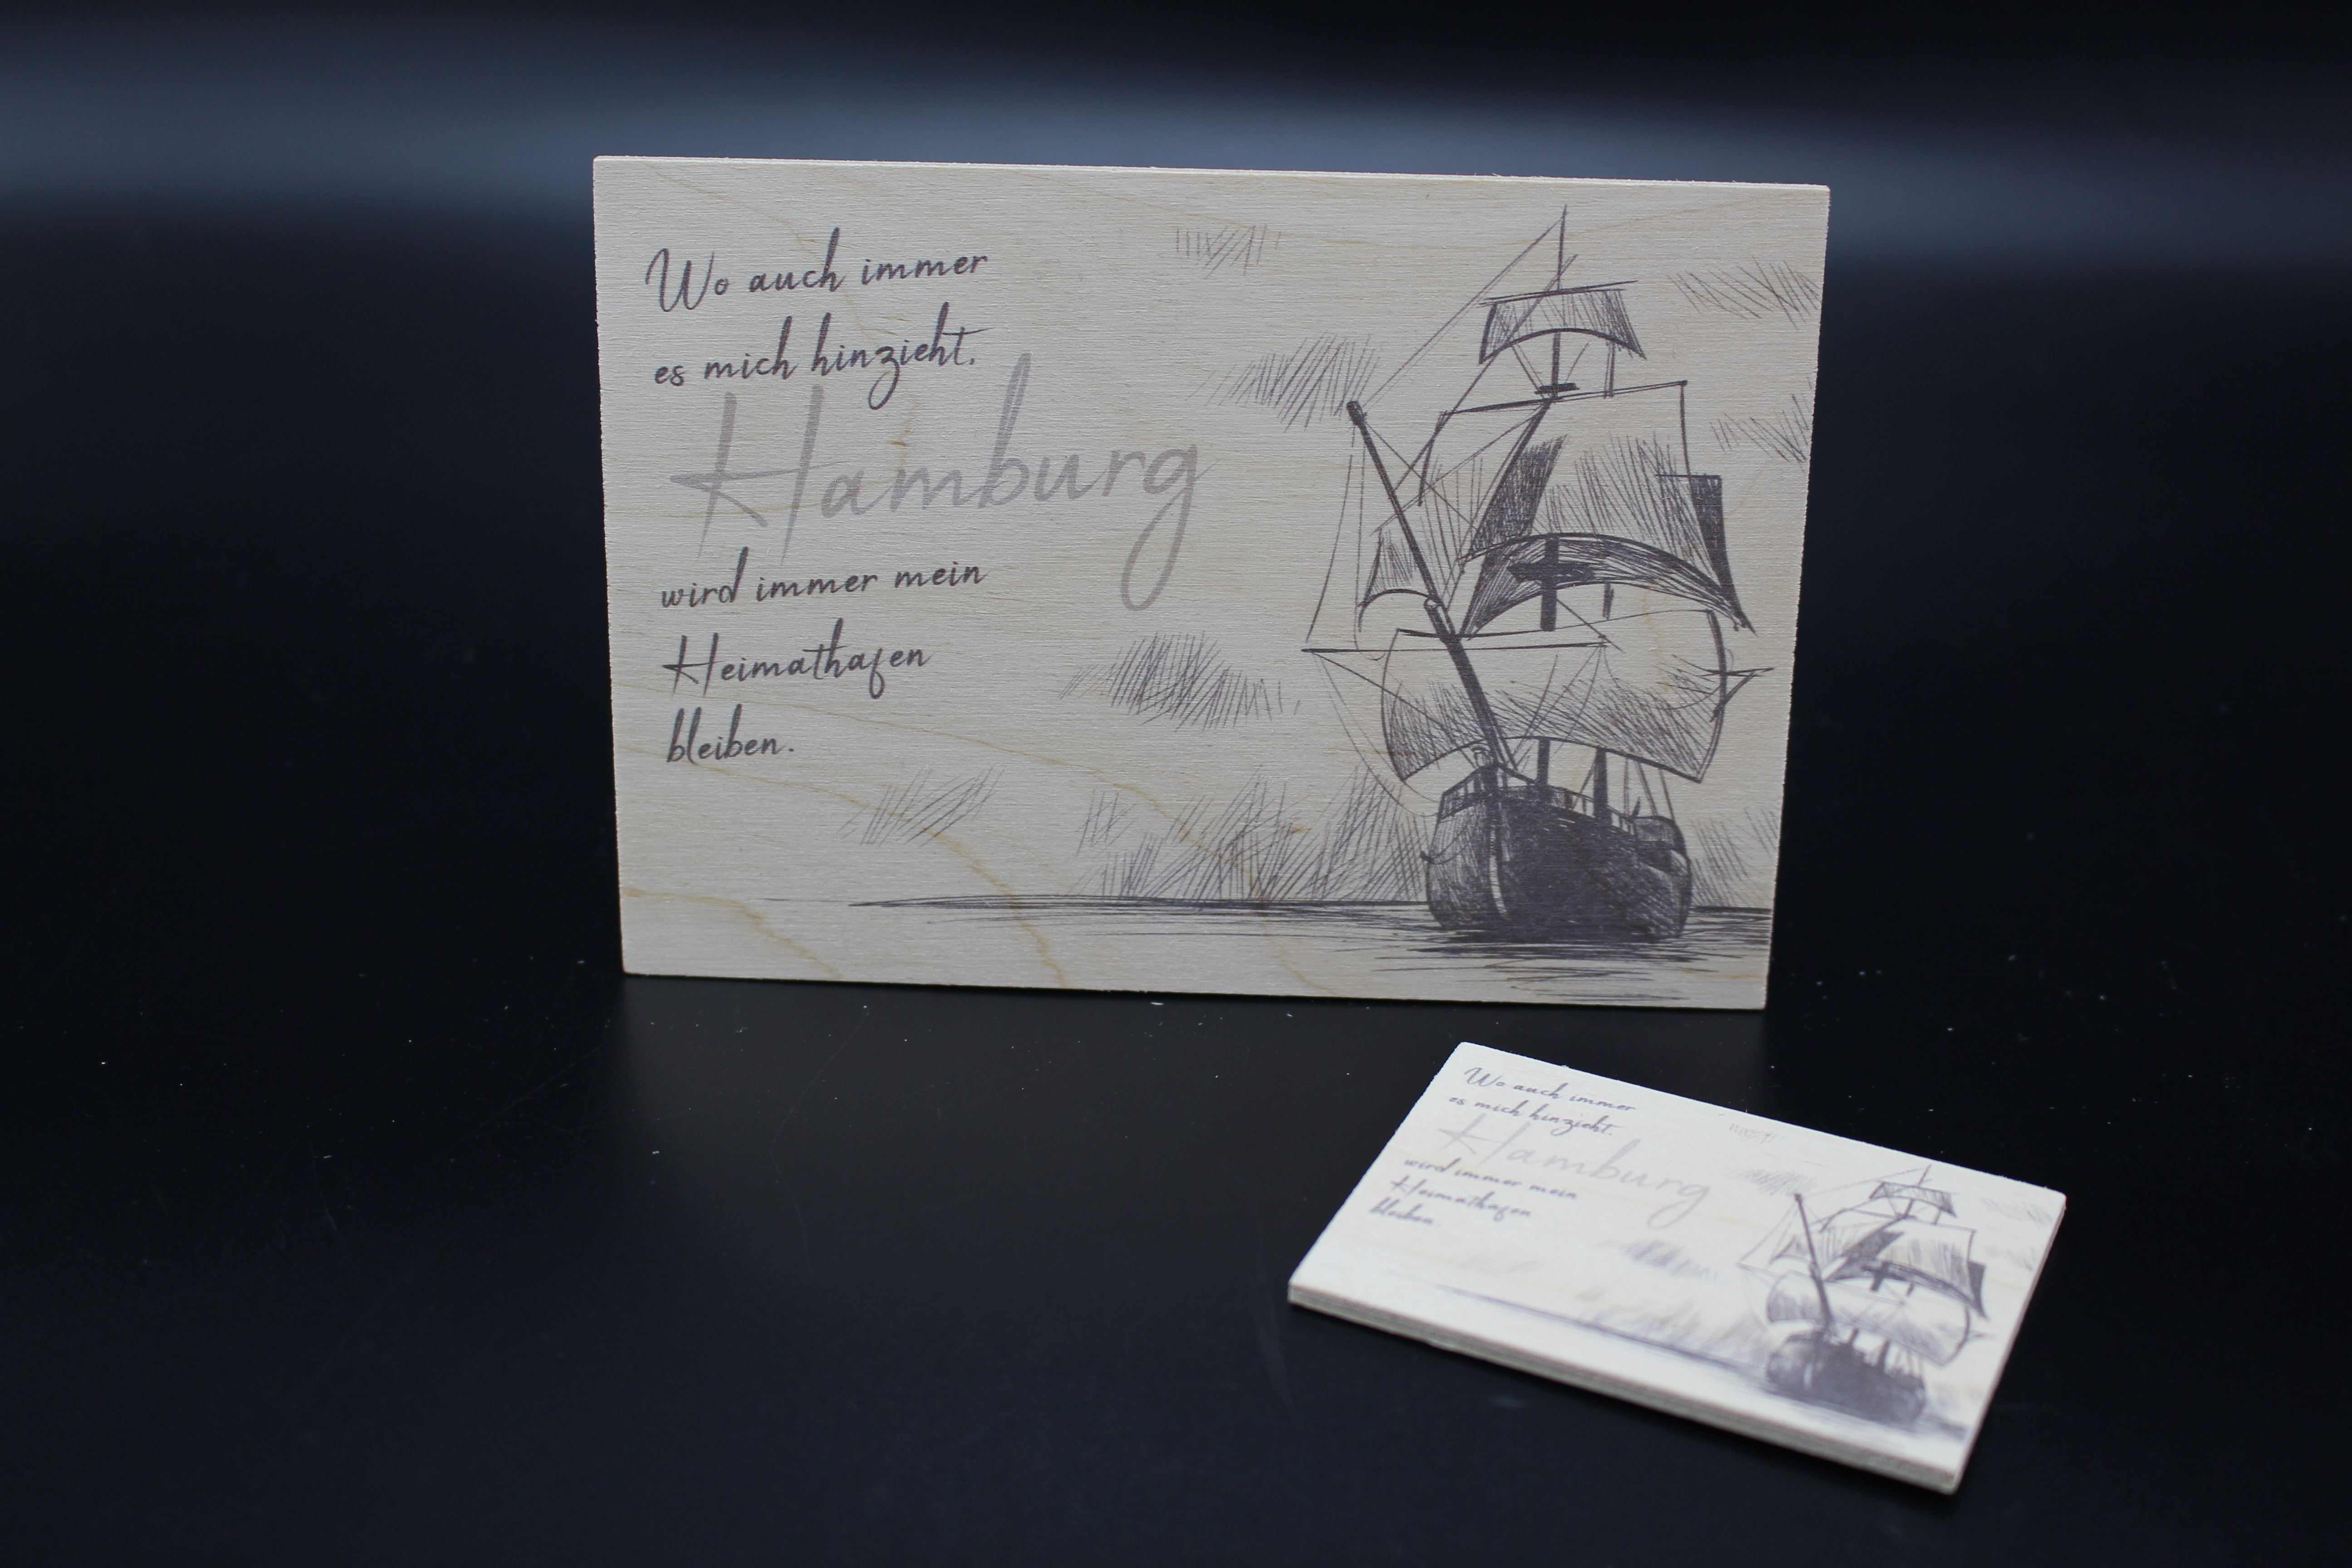 Wo auch immer
es mich hinzieht.
Hamburg
wird immer mein
Heimathafen
bleiben.
Wo auch immer
es mich hinzieht.
Hamburg
wird immer mein
Heimathafen
bleiben